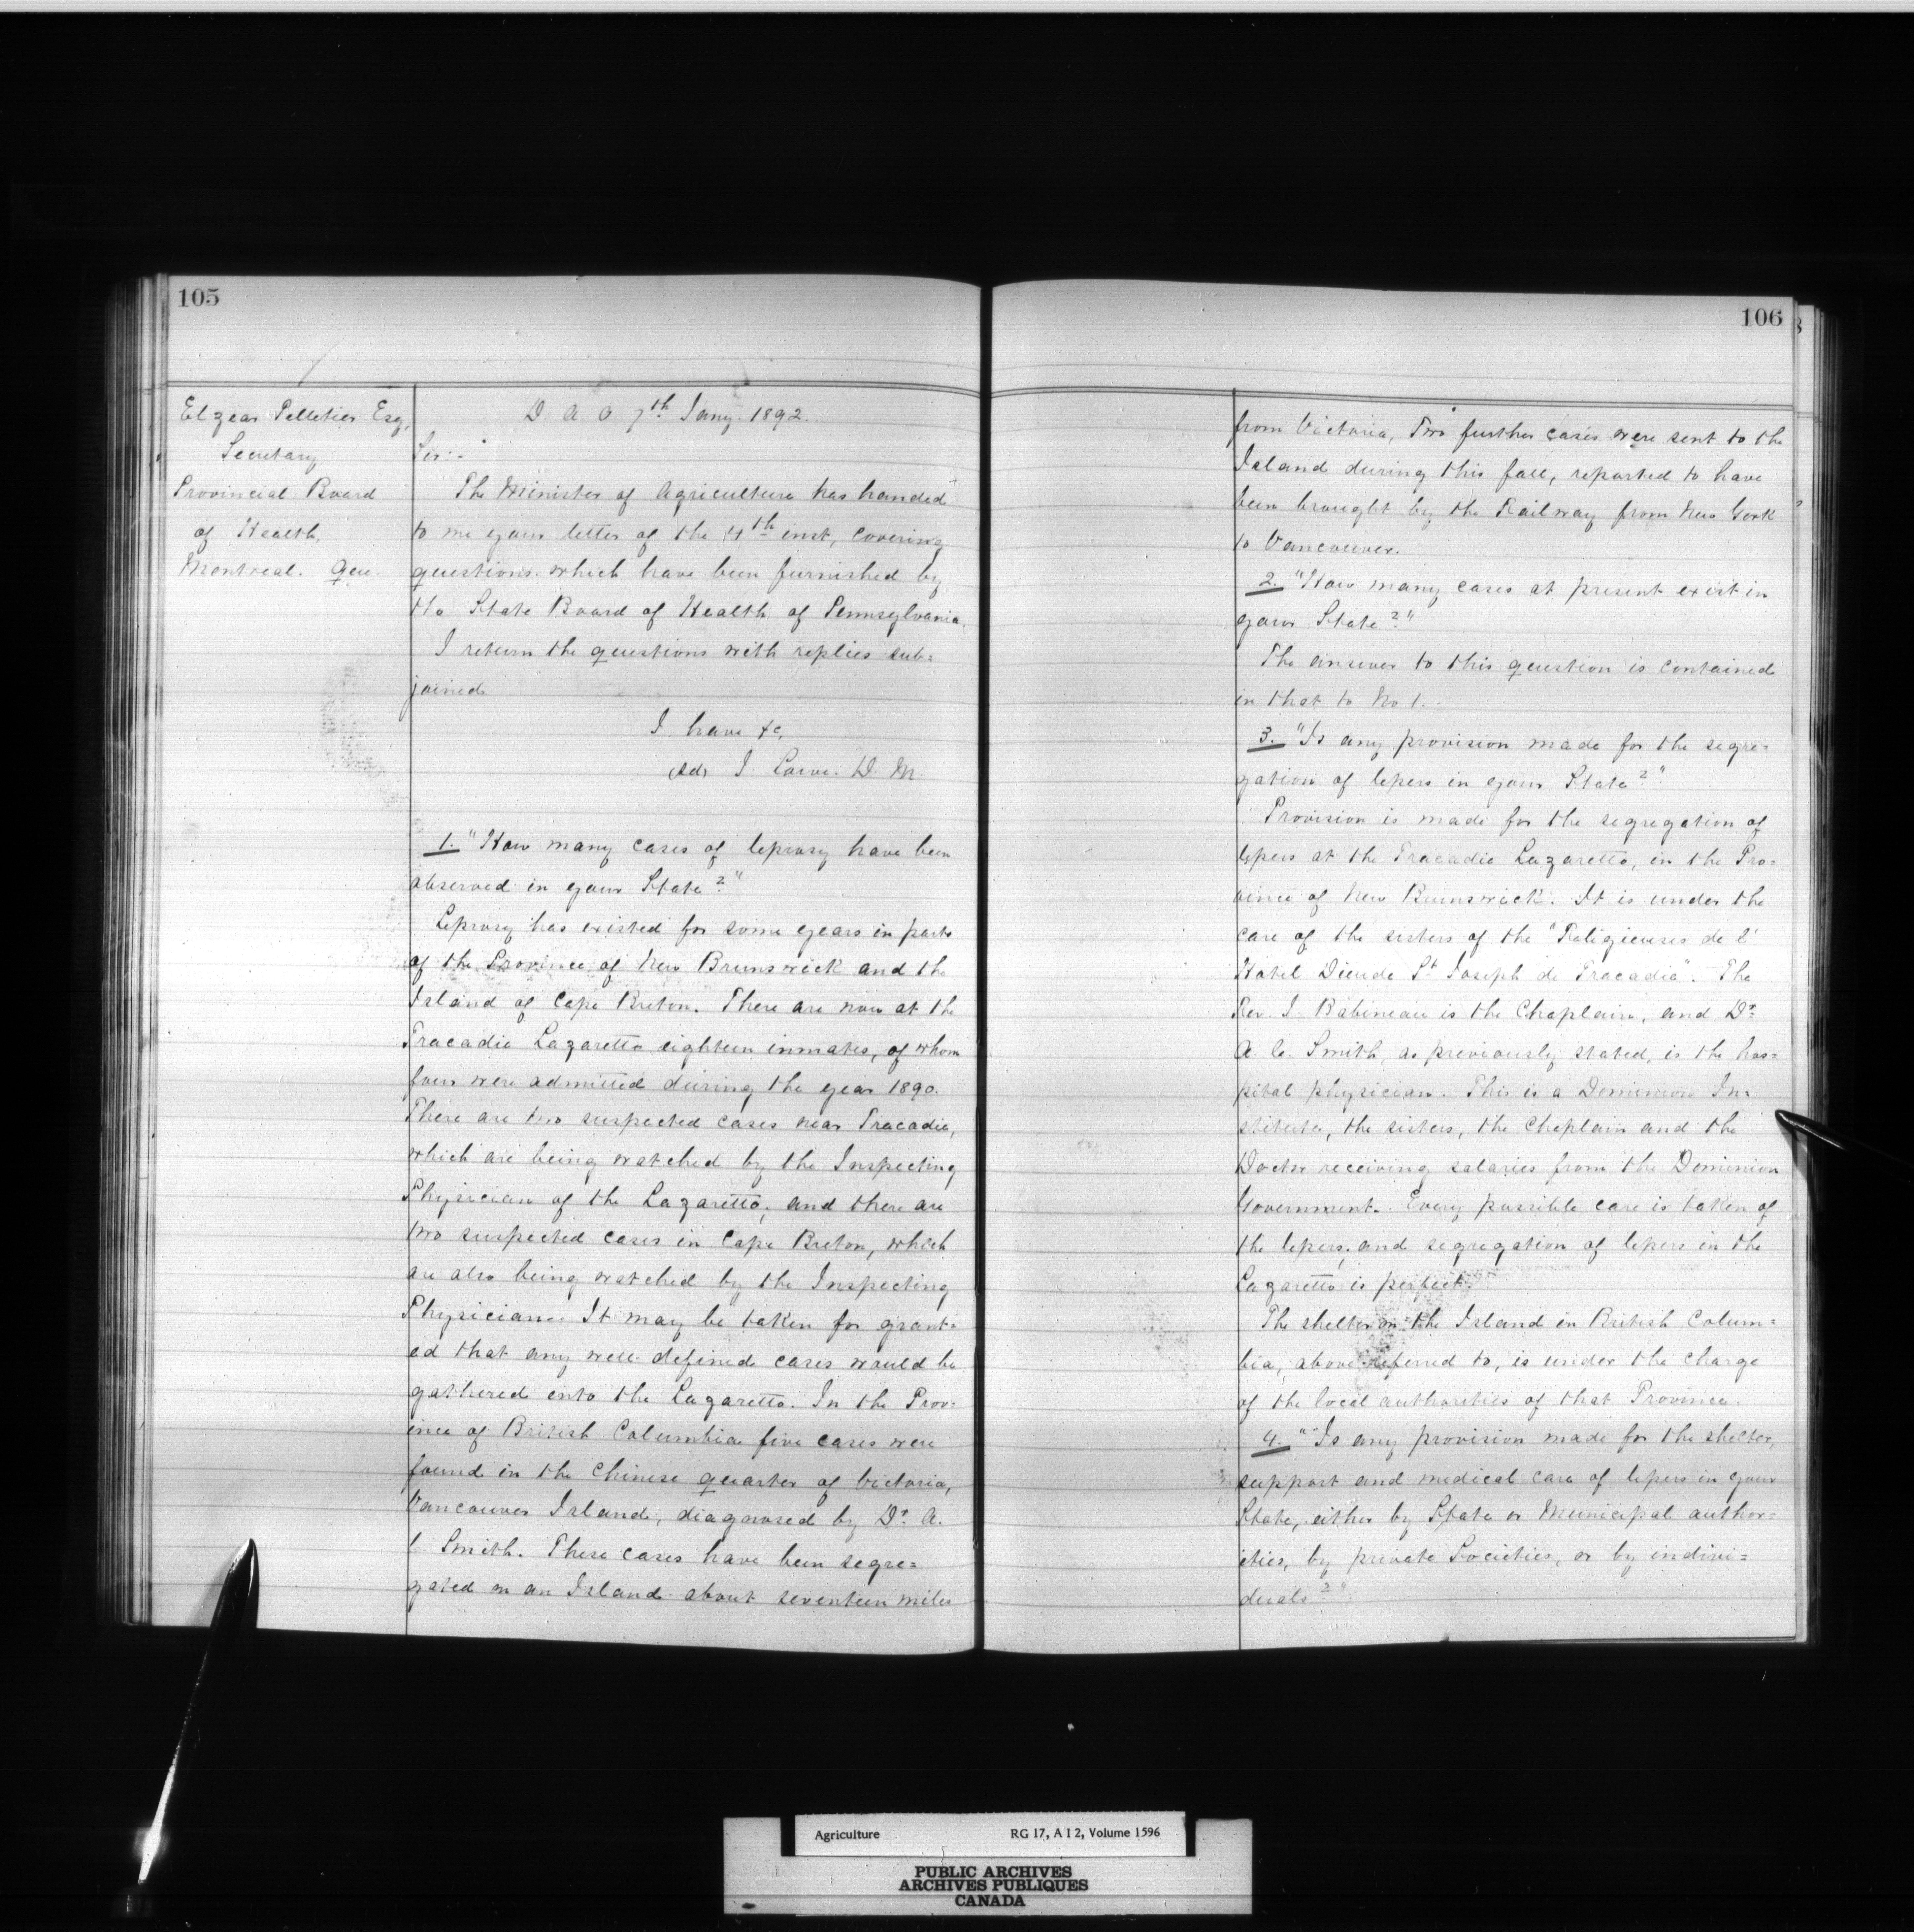 105
Elzear Pelletier Esq,
Secretary
Provincial Board
of Health,
Montreal. Que.
D. A. O. 7th Jany. 1892.
Sir:-
The Minister of Agriculture has handed
to me your letter of the 4th inst, covering
questions which have been furnished by
the State Board of Health of Pennsylvania.
I return the questions with replies sub=
joined
I have &c,
(sd) J. Lowe. D. M.
1. "How many cases of leprosy have been
observed in your State?"
Leprosy has existed for some years in parts
of the Province of New Brunswick and the
Island of Cape Breton. There are now at the
Tracadie Lazaretto eighteen inmates, of whom
four were admitted during the year 1890.
There are two suspected cases near Tracadie,
which are being watched by the Inspecting
Physician of the Lazaretto, and there are
two suspected cases in Cape Breton, which
are also being watched by the Inspecting
Physician. It may be taken for grant=
ed that any well defined cases would be
gathered into the Lazaretto. In the Prov=
ince of British Columbia five cases were
found in the Chinese quarter of Victoria,
Vancouver Island, diagnosed by Dr. A.
C. Smith. These cases have been segre=
gated on an Island about seventeen miles
106
from Victoria, Two further cases were sent to the
Island during this fall, reported to have
been brought by the Railway from New York
to Vancouver.
2. "How many cases at present exist in
your State?"
The answer to this question is contained
in that to No 1.
3. "Is any provision made for the segre=
gation of lepers in your State?"
Provision is made for the segregation of
lepers at the Tracadie Lazaretto, in the Pro=
vince of New Brunswick. It is under the
care of the sisters of the "Religieuses de l'
Hotel Dieu de St Joseph de Tracadie". The
Rev. J. Babineau is the Chaplain, and Dr.
A. C. Smith, as previously stated, is the hos=
pital physician. This is a Dominion In=
stitute, the sisters, the Chaplain and the
Doctor receiving salaries from the Dominion
Government. Every possible care is taken of
the lepers, and segregation of lepers in the
Lazaretto is perfect.
The shelter on the Island in British Colum=
bia, above referred to, is under the charge
of the local authorities of that Province.
4. "Is any provision made for the shelter,
support and medical care of lepers in your
State, either by State or Municipal author=
ities, by private Societies, or by indivi=
duals?"
Agriculture RG 17, A I 2, Volume 1596
PUBLIC ARCHIVES
ARCHIVES PUBLIQUES
CANADA